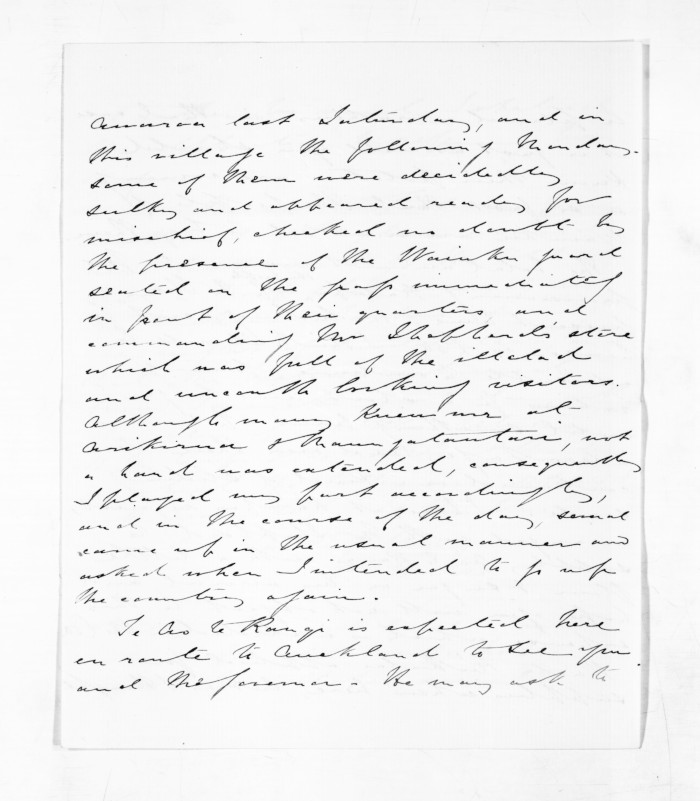 last Saturday, and in
this village the following Monday.
some of them were decidedly
sulky and appeared ready for
mischief, checked no doubt by
the presence of the Waiuku guard
seated on the grass immediately
in front of their quarters and
commanding Mr Shepherd's store
which was full of the illclad
and uncouth looking visitors.
Although many knew me at
& Maungatautari, not
a hand was extended, consequently
I played my part accordingly,
and in the course of the day, several
came up in the usual manner and
asked when I intended to go up
the country again.
Te Ao te Rangi is expected here
en route to Auckland to see you
and the Governor - He may ask to